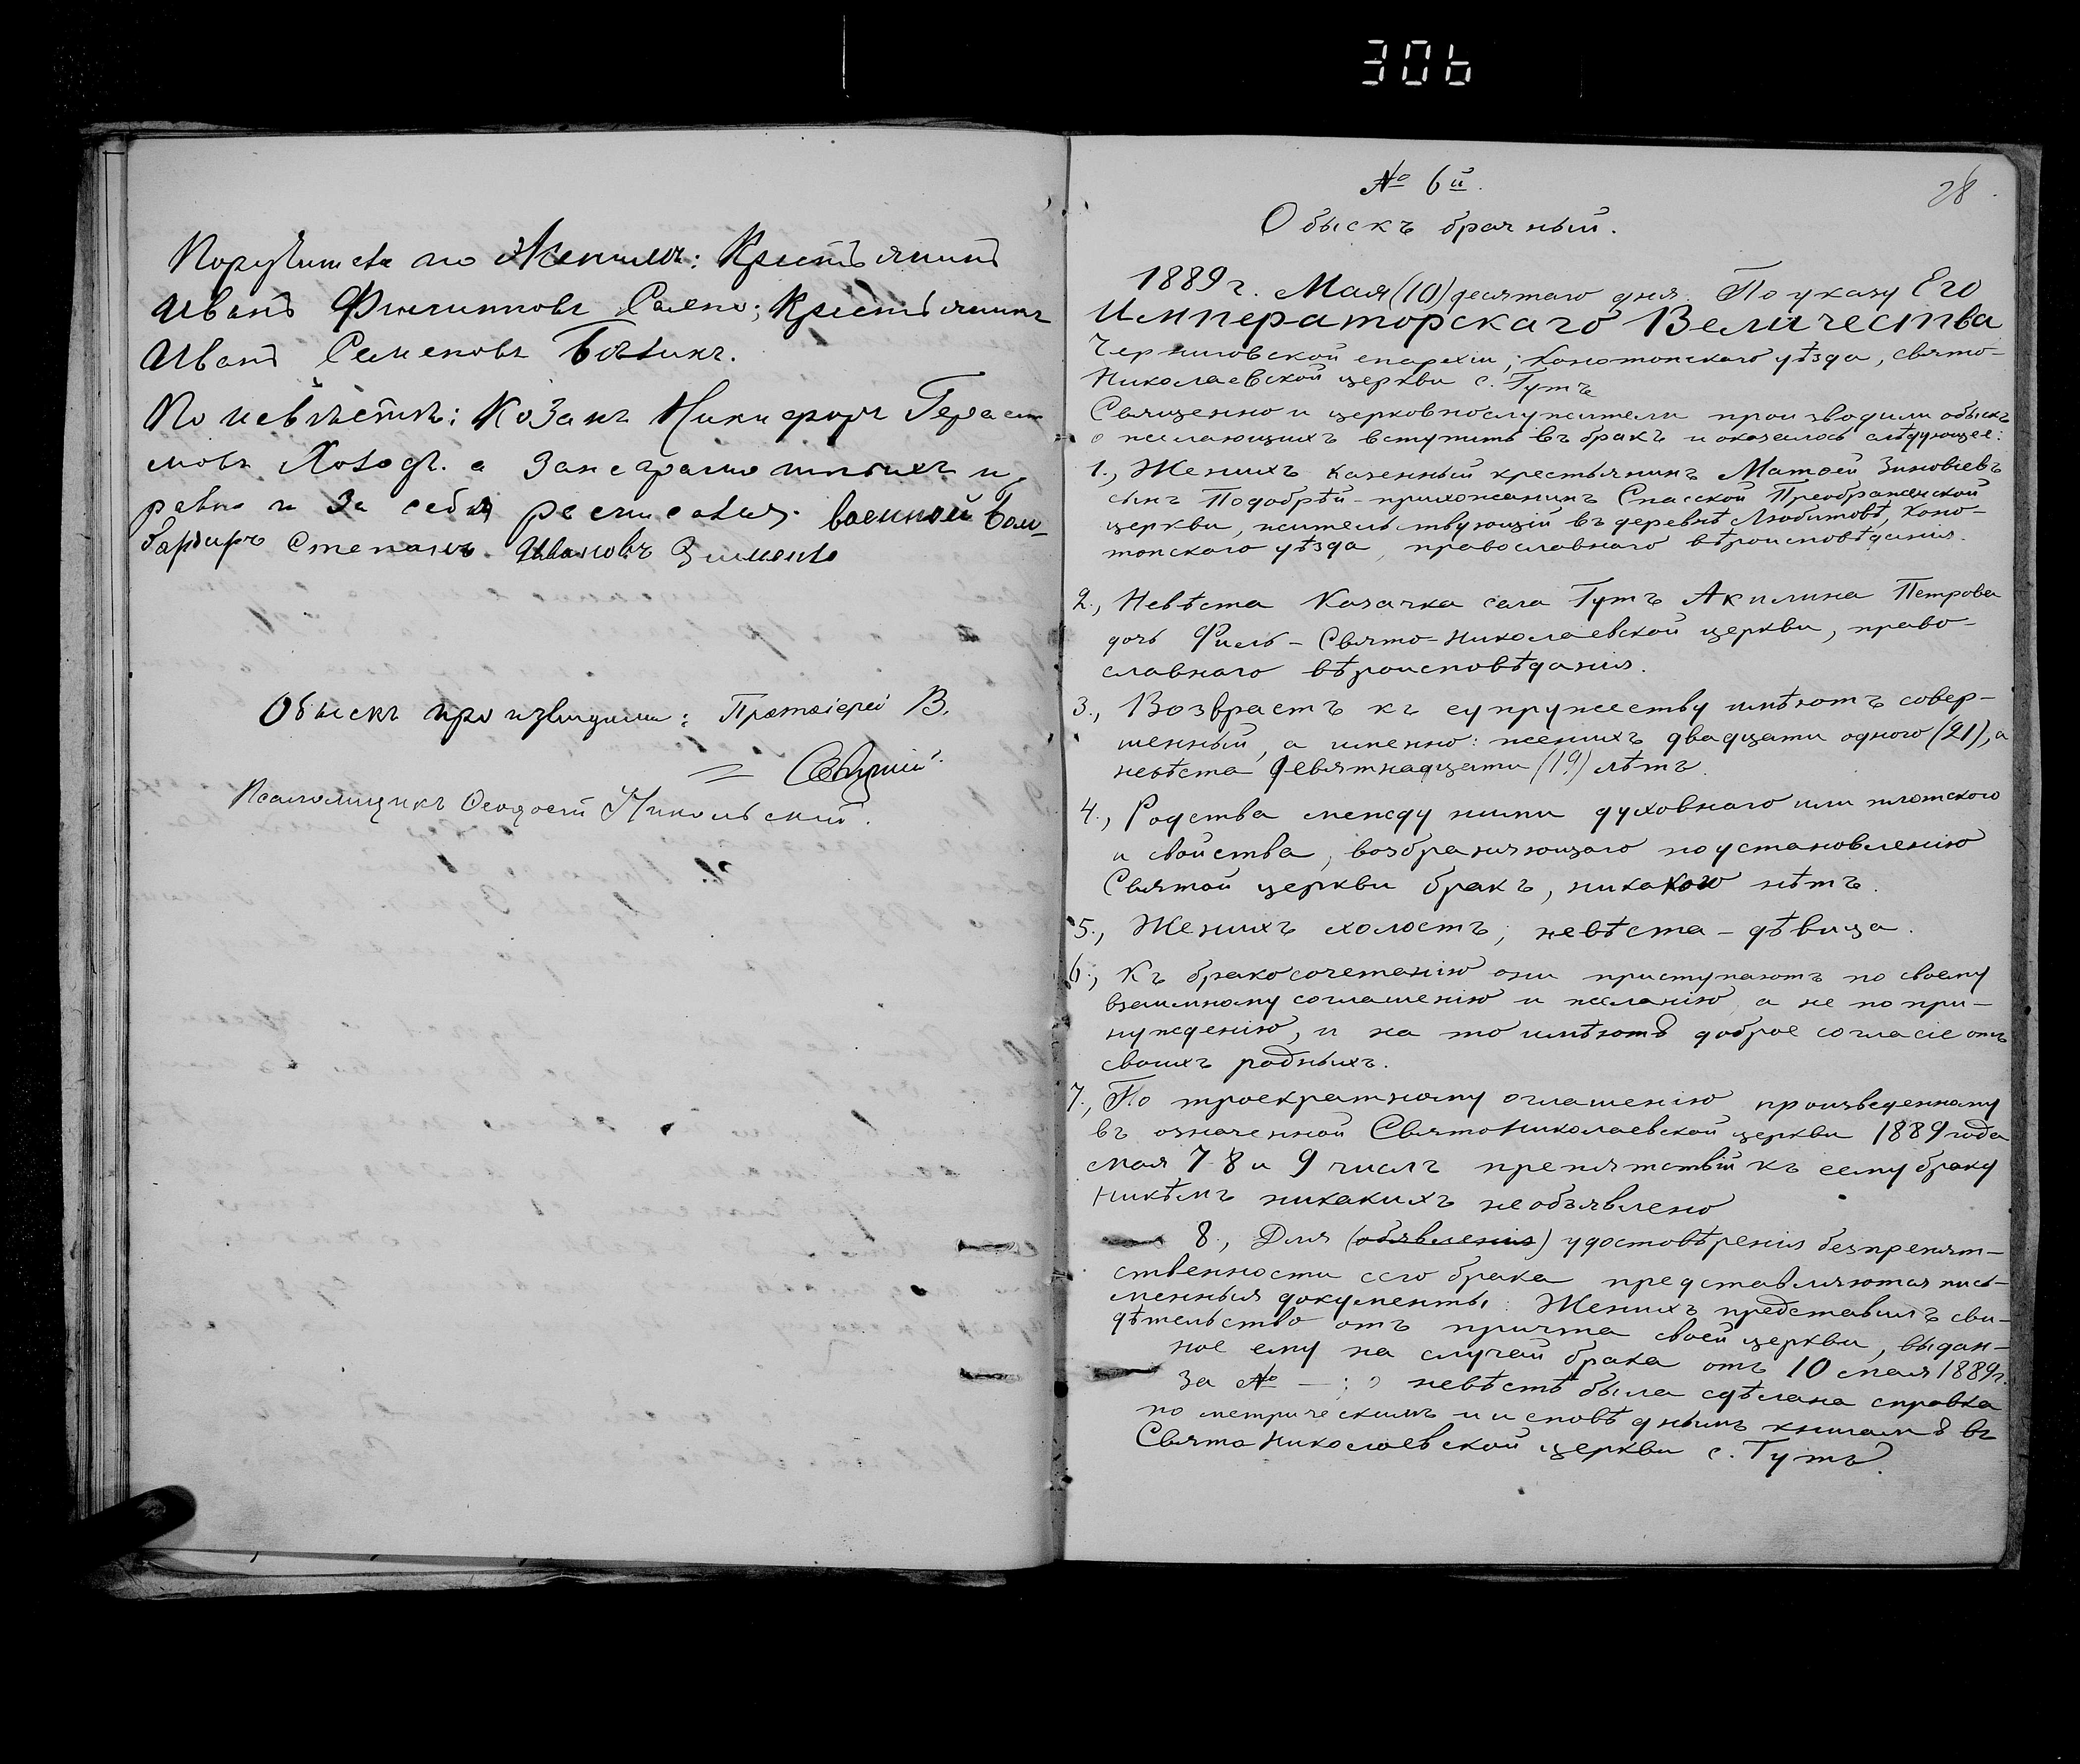 306
Поручители по Женихѣ: Крестьянинъ
Иванъ Филипповъ Крестьянинъ
Иванъ Семеновъ
По невѣстѣ: Козакъ Никифоръ Гераси
мовъ а за неграмотныхъ и
равно и за себя росписался военной
Степанъ Ивановъ
Обыскъ производили: Протоіерей В.
Псаломщикъ Ѳеодосій Никольскій.
№ 6й.
28
Обыскъ брачный.
1889 г. Мая (10) десятаго дня. По указу Его
Императорскаго Величества
Черниговской епархіи, Конотопскаго уѣзда, Свято-
Николаевской церкви с. Гутъ
Священно и церковнослужители производили обыскъ
о желающихъ вступить въ бракъ и оказалось слѣдующее:
1., Женихъ казенный крестьянинъ Матѳей Зиновіевъ
сынъ Подобрѣй - прихожанинъ Спасской Преображенской
церкви, жительствующій въ деревнѣ Любитовѣ, Коно-
топскаго уѣзда, православнаго вѣроисповѣданія.
2., Невѣста Казачка села Гутъ Акилина Петрова
дочь Филь - Свято-Николаевской церкви, право-
славнаго вѣроисповѣданія.
3., Возврастъ къ супружеству имѣютъ совер-
шенный, а именно: женихъ двадцати одного (21), а
невѣста девятнадцати (19) лѣтъ.
4., Родства между ними духовнаго или плотскаго
и свойства, возбраняющаго по установленію
Святой церкви бракъ, никакого нѣтъ.
5., Женихъ холостъ, невѣста - дѣвица.
6., Къ бракосочетанію они приступаютъ по своему
взаимному соглашенію и желанію, а не по при-
нужденію, и на то имѣютъ доброе согласіе отъ
своихъ родныхъ.
7., По троекратному оглашенію произведенному
въ означенной СвятоНиколаевской церкви 1889 года
мая 7 8 и 9 числъ препятствій къ сему браку
никѣмъ никакихъ необъявлено
8., Для (объявленія) удостовѣренія безпрепят-
ственности сего брака представляются пись-
менныя документы: Женихъ представилъ сви-
дѣтельство отъ причта своей церкви, выдан-
ное ему на случай брака отъ 10 мая 1889 г.
за № —; о невѣстѣ была сдѣлана справка
по метрическимъ и исповѣднымъ книгамъ въ
СвятоНиколаевской церкви с. Гутъ.